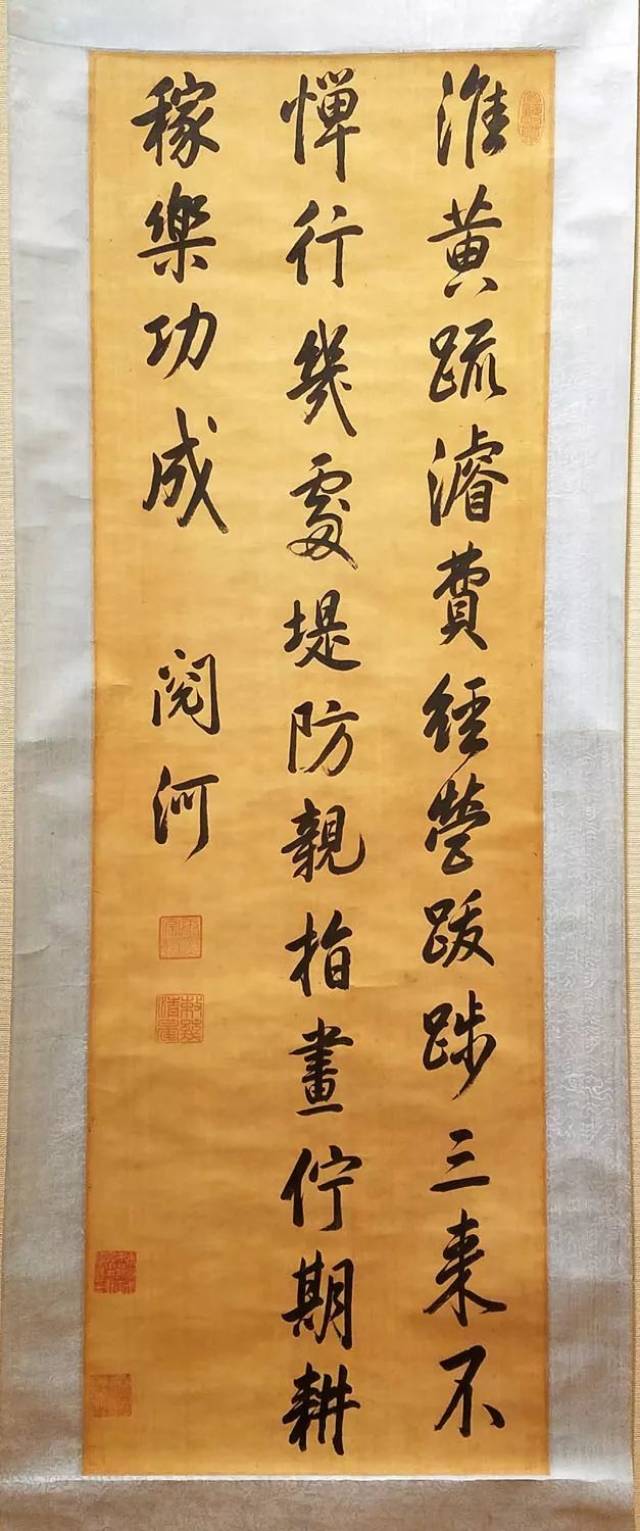 淮黄疏濬費經營跋踄三来不
憚行幾處堤防親指畫佇期耕
稼樂功成 閱河